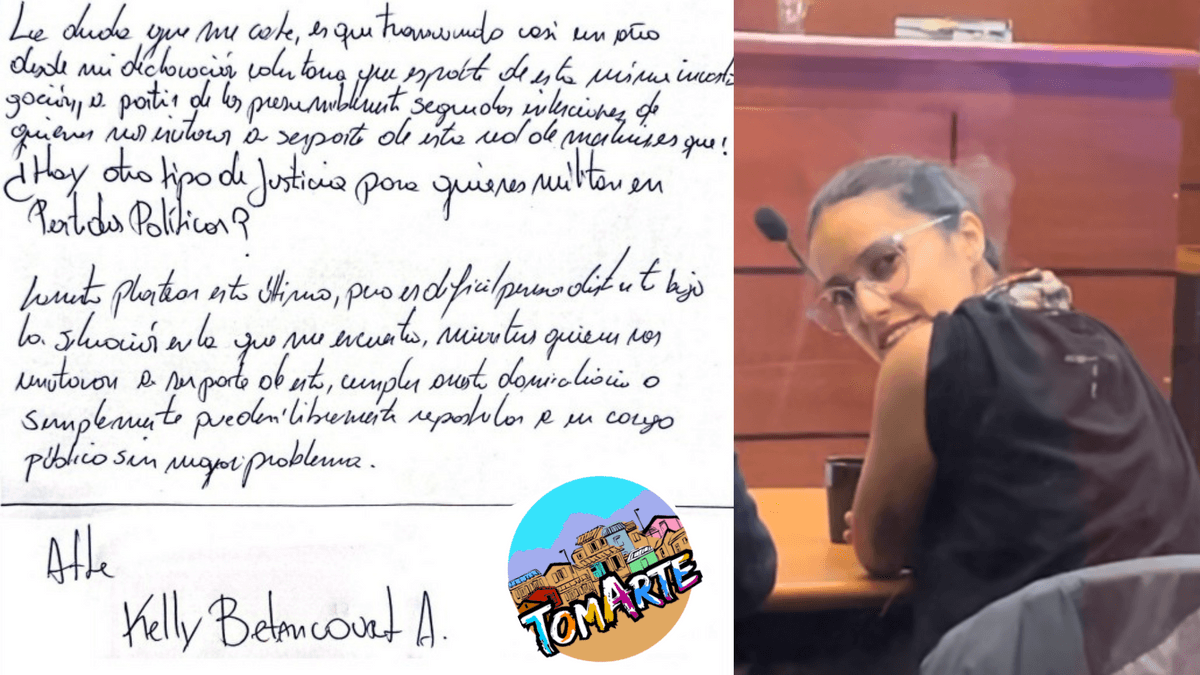 La duda que me cabe, es que transcurrido casi un año
desde mi declaración voluntaria que es parte de esta misma investi
gación, a partir de las presumiblemente segundas intenciones de
quienes nos invitaron a ser parte de esta red de que!
¿Hay otro tipo de Justicia para quienes militan en
Partidos Políticos?
Lamento plantear esto último, pero es dificil pensar distinto bajo
la situación en la que me encuentro, mientras quienes nos
invitaron a ser parte de esto, cumplen arresto domiciliario o
simplemente pueden libremente repostular a un cargo
público sin mayor problema.
Atte
Kelly Betancourt A.
TOMARTE